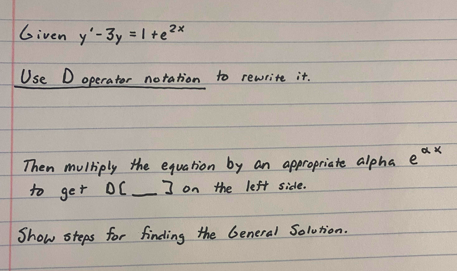 Given y' - 3y = 1 + e^2x
Use D operator notation to rewrite it.
Then multiply the equation by an appropriate alpha e^αx
to get D[ __ ] on the left side.
Show steps for finding the General Solution.